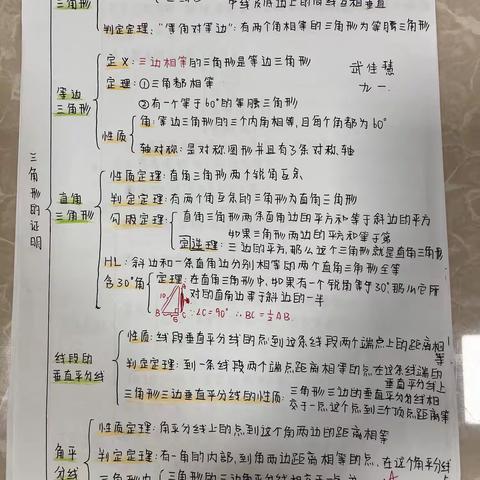 三角形
中线及底边上的高线互相垂直
判定定理:“等角对等边”:有两个角相等的三角形为等腰三角形
三角形的证明
等边三角形
定义:三边相等的三角形是等边三角形
定理:①三角都相等
②有一个等于60°的等腰三角形
性质
角:等边三角形的三个内角相等,且每个角都为60°
轴对称:是对称图形并且有3条对称轴
武佳慧
九一.
直角三角形
性质定理:直角三角形两个锐角互余
判定定理:有两个角互余的三角形为直角三角形
勾股定理
直角三角形两条直角边的平方和等于斜边的平方
如果三角形两边的平方和等于第
三边的平方,那么这个三角形就是直角三角形
HL:斜边和一条直角边分别相等的两个直角三角形全等
含30°角
定理:在直角三角形中,如果有一个锐角等于30°,那么它所
对的直角边等于斜边的一半
10
B 5 C
∵∠C=90° ∴BC=½AB.
线段的垂直平分线
性质:线段垂直平分线的点到这条线段两个端点上的距离相等
判定定理:到一条线段两个端点距离相等的点,在这条线段的
垂直平分线上
三角形三边垂直平分线的性质:三角形三边的垂直平分线相
交于一点,这个点到三个顶点距离等
角平分线
性质定理:角平分线上的点到这个角两边的距离相等
判定定理:有一角的内部,到角两边距离相等的点,在这个角平分线
三角形内
A